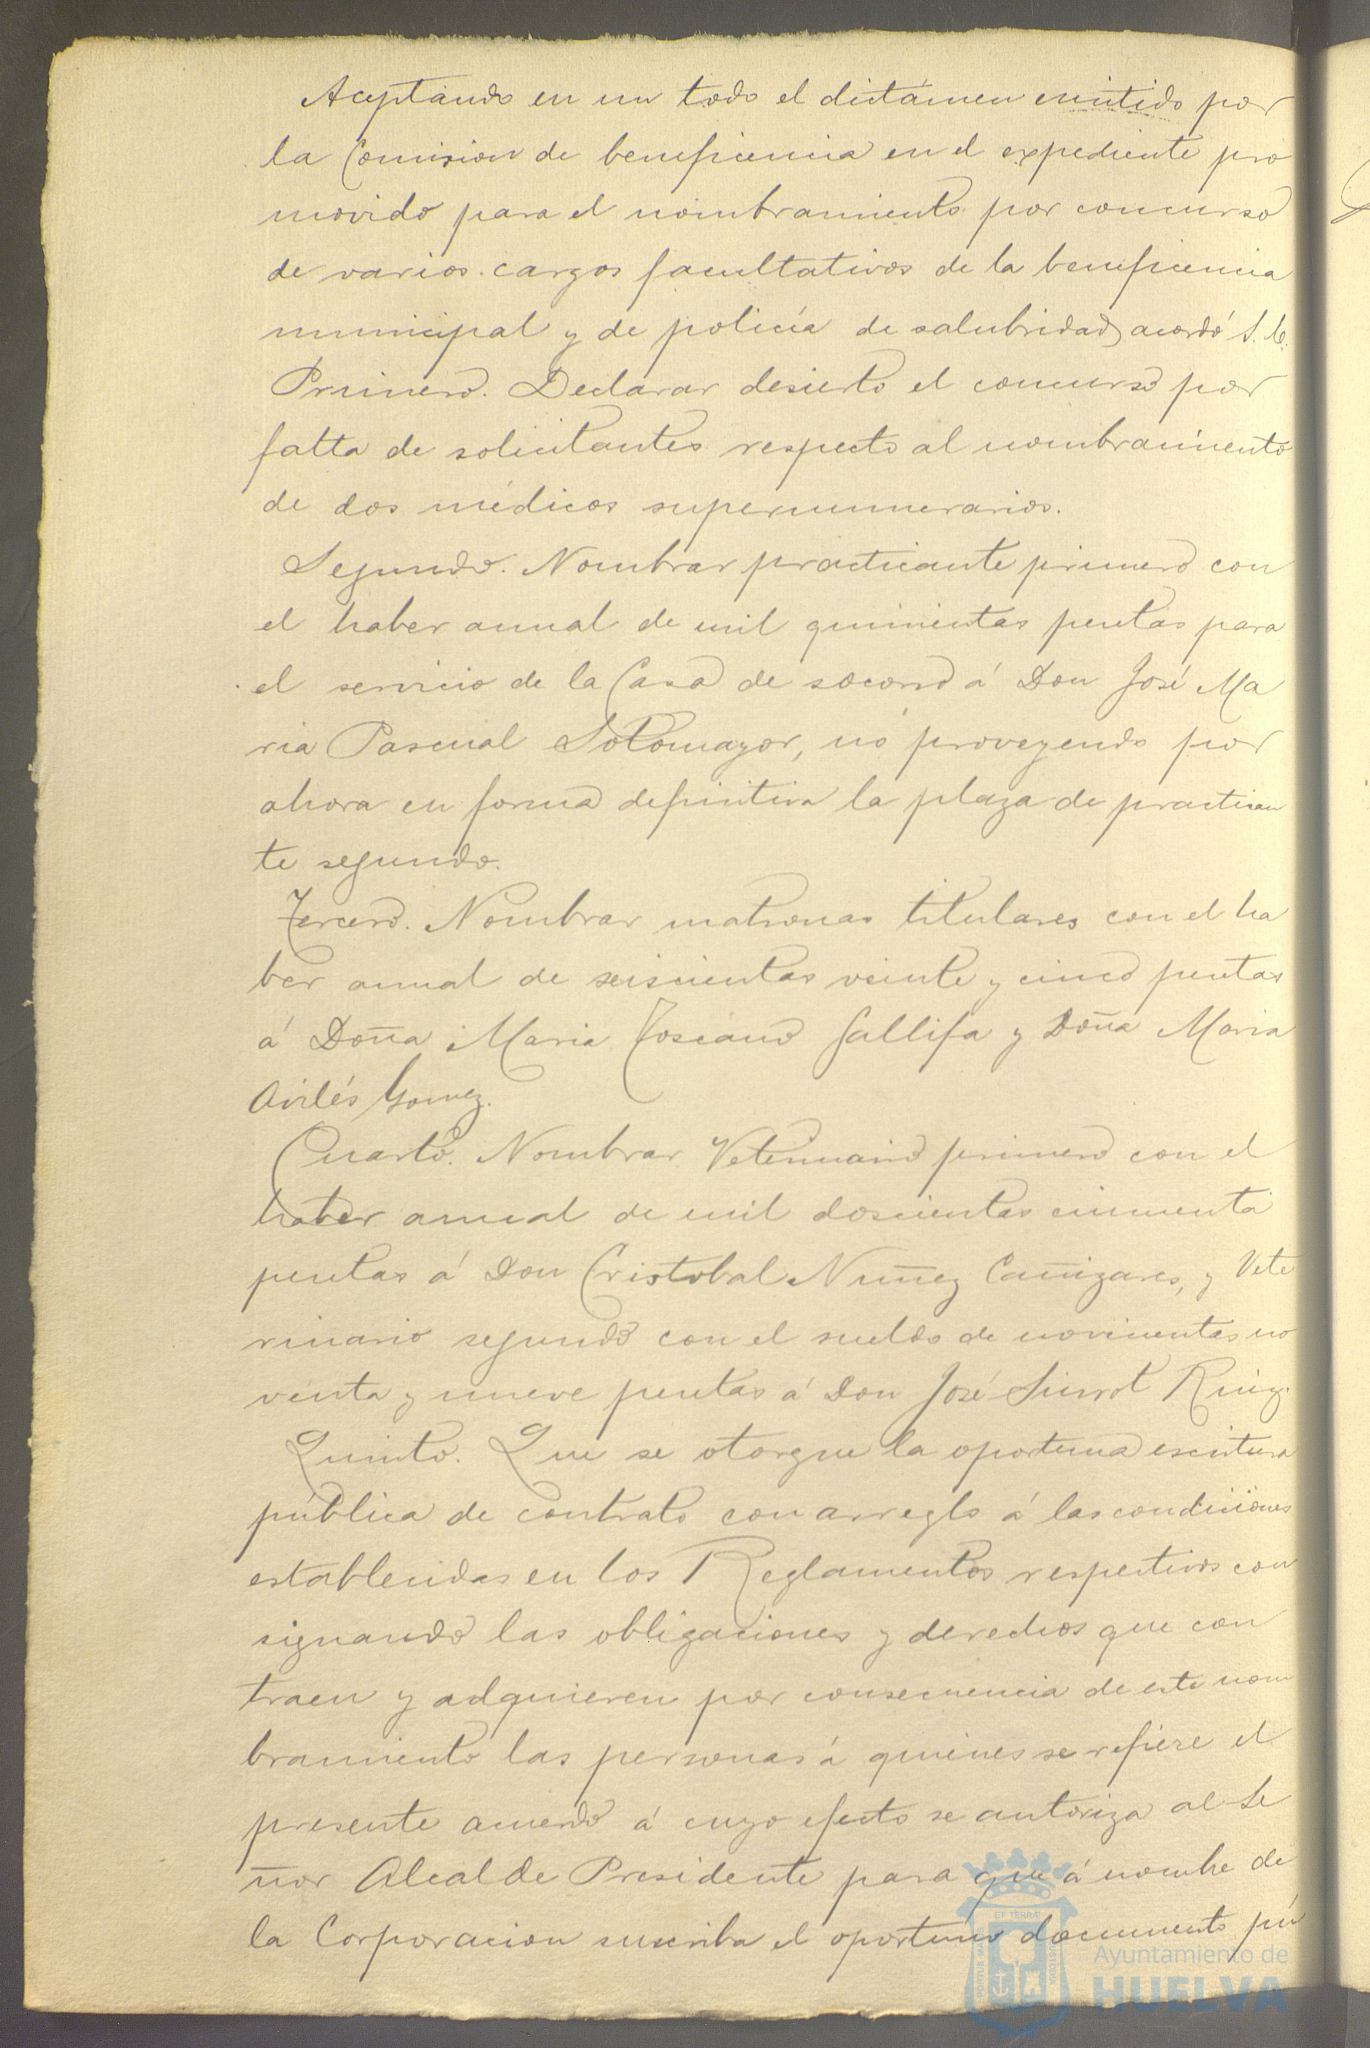 Aceptando en un todo el dictámen emitido por
la Comision de beneficencia en el expediente pro
movido para el nombramiento por concurso
de varios cargos facultativos de la beneficencia
municipal y de policía de salubridad, acordó S. E.
Primero. Declarar desierto el concurso por
falta de solicitantes respecto al nombramiento
de dos médicos supernumerarios.
Segundo. Nombrar practicante primero con
el haber anual de mil quinientas pesetas para
el servicio de la Casa de socorro á Don José Ma
ria Pascual Sotomayor, nó proveyendo por
ahora en forma definitiva la plaza de practican
te segundo.
Tercero. Nombrar matronas titulares con el ha
ber anual de seiscientas veinte y cinco pesetas
á Doña Maria Toscano Gallifa y Doña Maria
Avilés Gomez.
Cuarto. Nombrar Veterinario primero con el
haber anual de mil doscientas cincuenta
pesetas á Don Cristobal Nuñez Cañizares, y Vete
rinario segundo con el sueldo de novecientas no
venta y nueve pesetas á Don José Ruiz.
Quinto. Que se otorgue la oportuna escritura
pública de contrato con arreglo á las condiciones
establecidas en los Reglamentos respectivos con
signando las obligaciones y derechos que con
traen y adquieren por consecuencia de este nom
bramiento las personas á quienes se refiere el
presente acuerdo á cuyo efecto se autoriza al Se
ñor Alcalde Presidente para que á nombre de
la Corporacion suscriba el oportuno documento pú
Ayuntamiento de
HUELVA